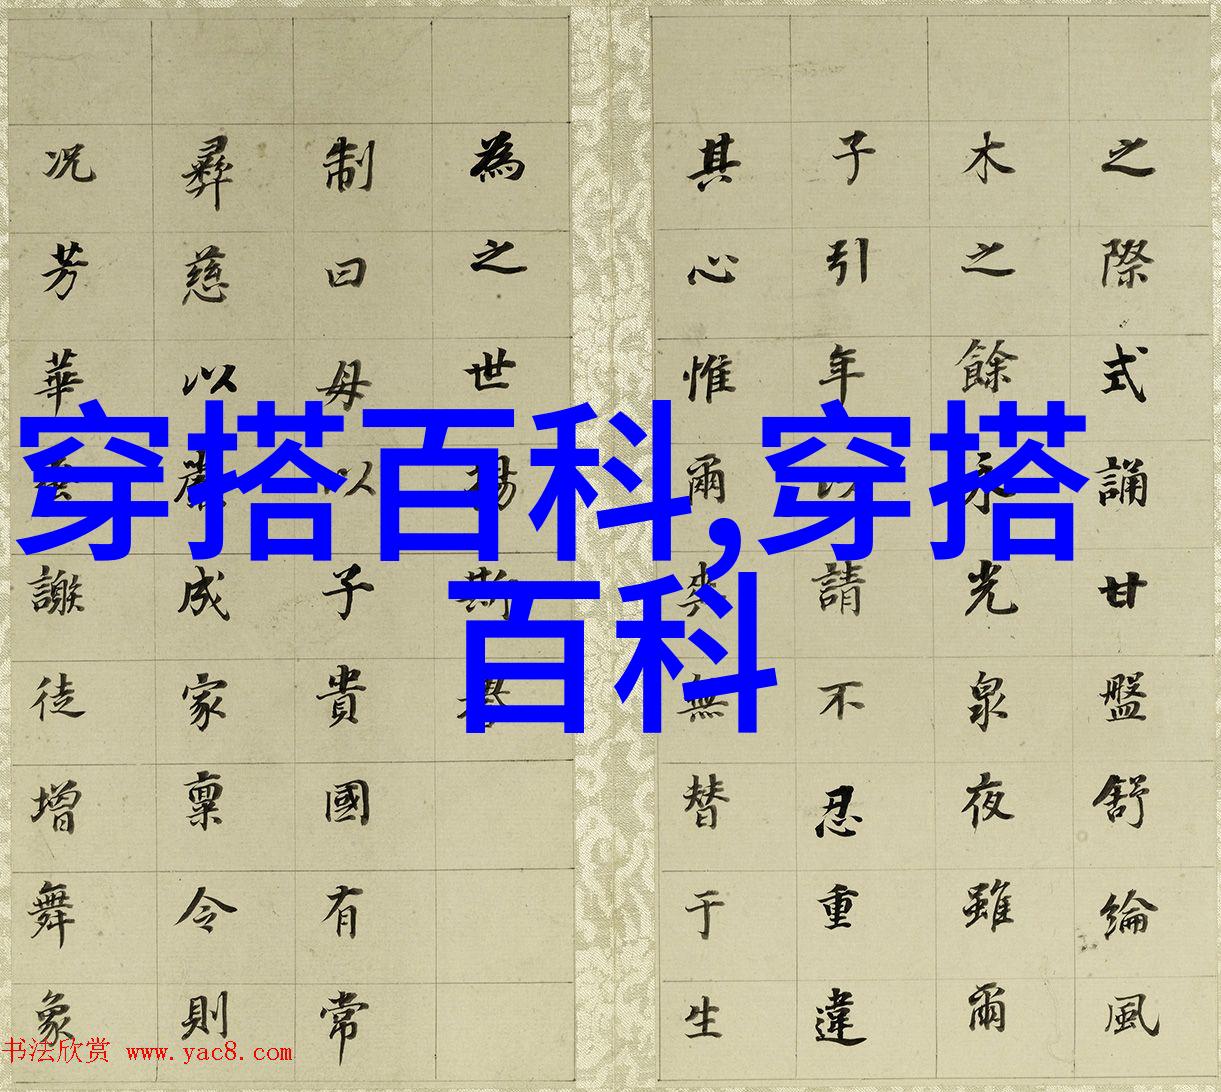 穿搭百科,穿搭
百科
之際式誦甘盤舒綸風
木之餘永光泉夜雖爾
子引年以請不忍重違
其心惟爾奕無替于生
為之世斯
制曰母以子貴國有常
彝慈以嚴成家稟令則
况芳華謝徒增舞象
书法欣赏 www.yac8.com